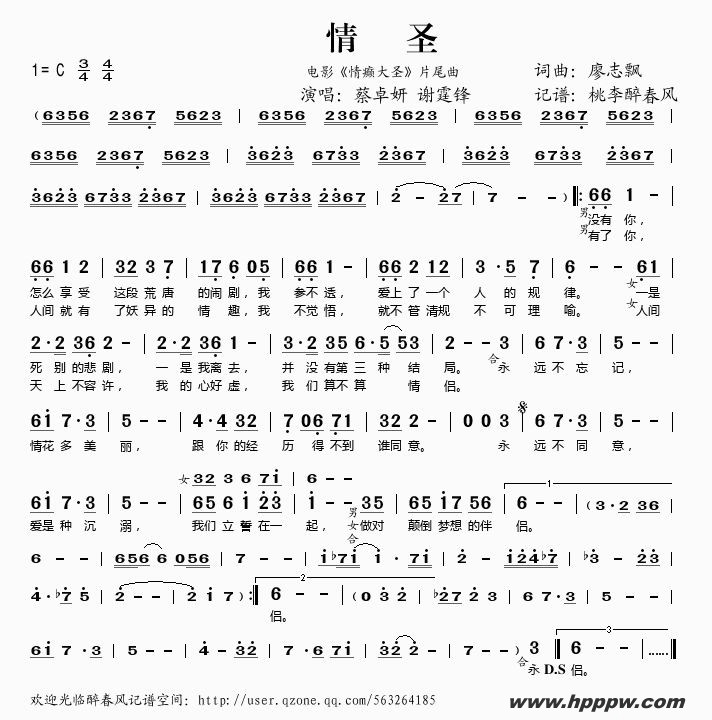 情 圣
1=C 3/4 4/4 电影《情癫大圣》片尾曲 词曲：廖志飘
演唱：蔡卓妍 谢霆锋 记谱：桃李醉春风
（6356 2367 5623 | 6356 2367 5623 | 6356 2367 5623 |
6356 2367 5623 | 3623 6733 2367 | 3623 6733 2367 |
3623 6733 2367 | 3623 6733 2367 | 2 - 27 | 7 - -）‖: 66 1 - |
男没有 你，
男有了 你，
66 1 2 | 32 3 7 | 17 6 05 | 66 1 - | 66 2 12 | 3 · 5 7 | 6 - 61 |
怎么 享 受 这段 荒 唐 的闹 剧，我 参不 透， 爱上 了一个 人 的 规 律。 女一是
人间 就 有 了妖 异 的 情 趣，我 不觉 悟， 就不 管 清规 不 可 理 喻。 女人间
2·2 36 2 | 2·2 36 1 | 2·2 35 | 6·5 53 | 2 - - 3 | 6 7·3 | 5 - - |
死 别的悲 剧， 一 是我离 去， 并 没有第 三 种 结 局。 合永 远 不 忘 记，
天 上不容 许， 我 的心好 虚， 我 们算不 算 情 侣。
61 7·3 | 5 - - | 4·4 32 | 7 06 71 | 32 2 - | 0 0 3 | 6 7·3 | 5 - - |
情花 多 美 丽， 跟 你的经 历 得 不到 谁同 意。 永 远 不 同 意，
女 32 3 6 71 | 6 - -
61 7·3 | 5 - - | 65 6 1 23 | 1 - 35 | 65 17 56 | 6 - - （3·2 36 |
爱是 种 沉 溺， 我们 立 誓 在一 起， 男女合做对 颠倒 梦想 的伴 侣。
6 - - | 656 6 056 | 7 - - | 1♭71 1 · 71 | 2 - 124♭7 | ♭3 - 23 |
4·♭7 5 | 2 - - | 2 1 7）:‖ 6 - - （0 3 2 | ♭27 3 2 | 1 7 6 |
侣。
61 7·3 | 5 - - | 4 - 32 | 7·6 71 | 32 2 - | 7 - -）3 ‖ 6 - - |……‖
合永 D.S 侣。
欢迎光临醉春风记谱空间：http://user.qzone.qq.com/563264185
www.hppppw.com